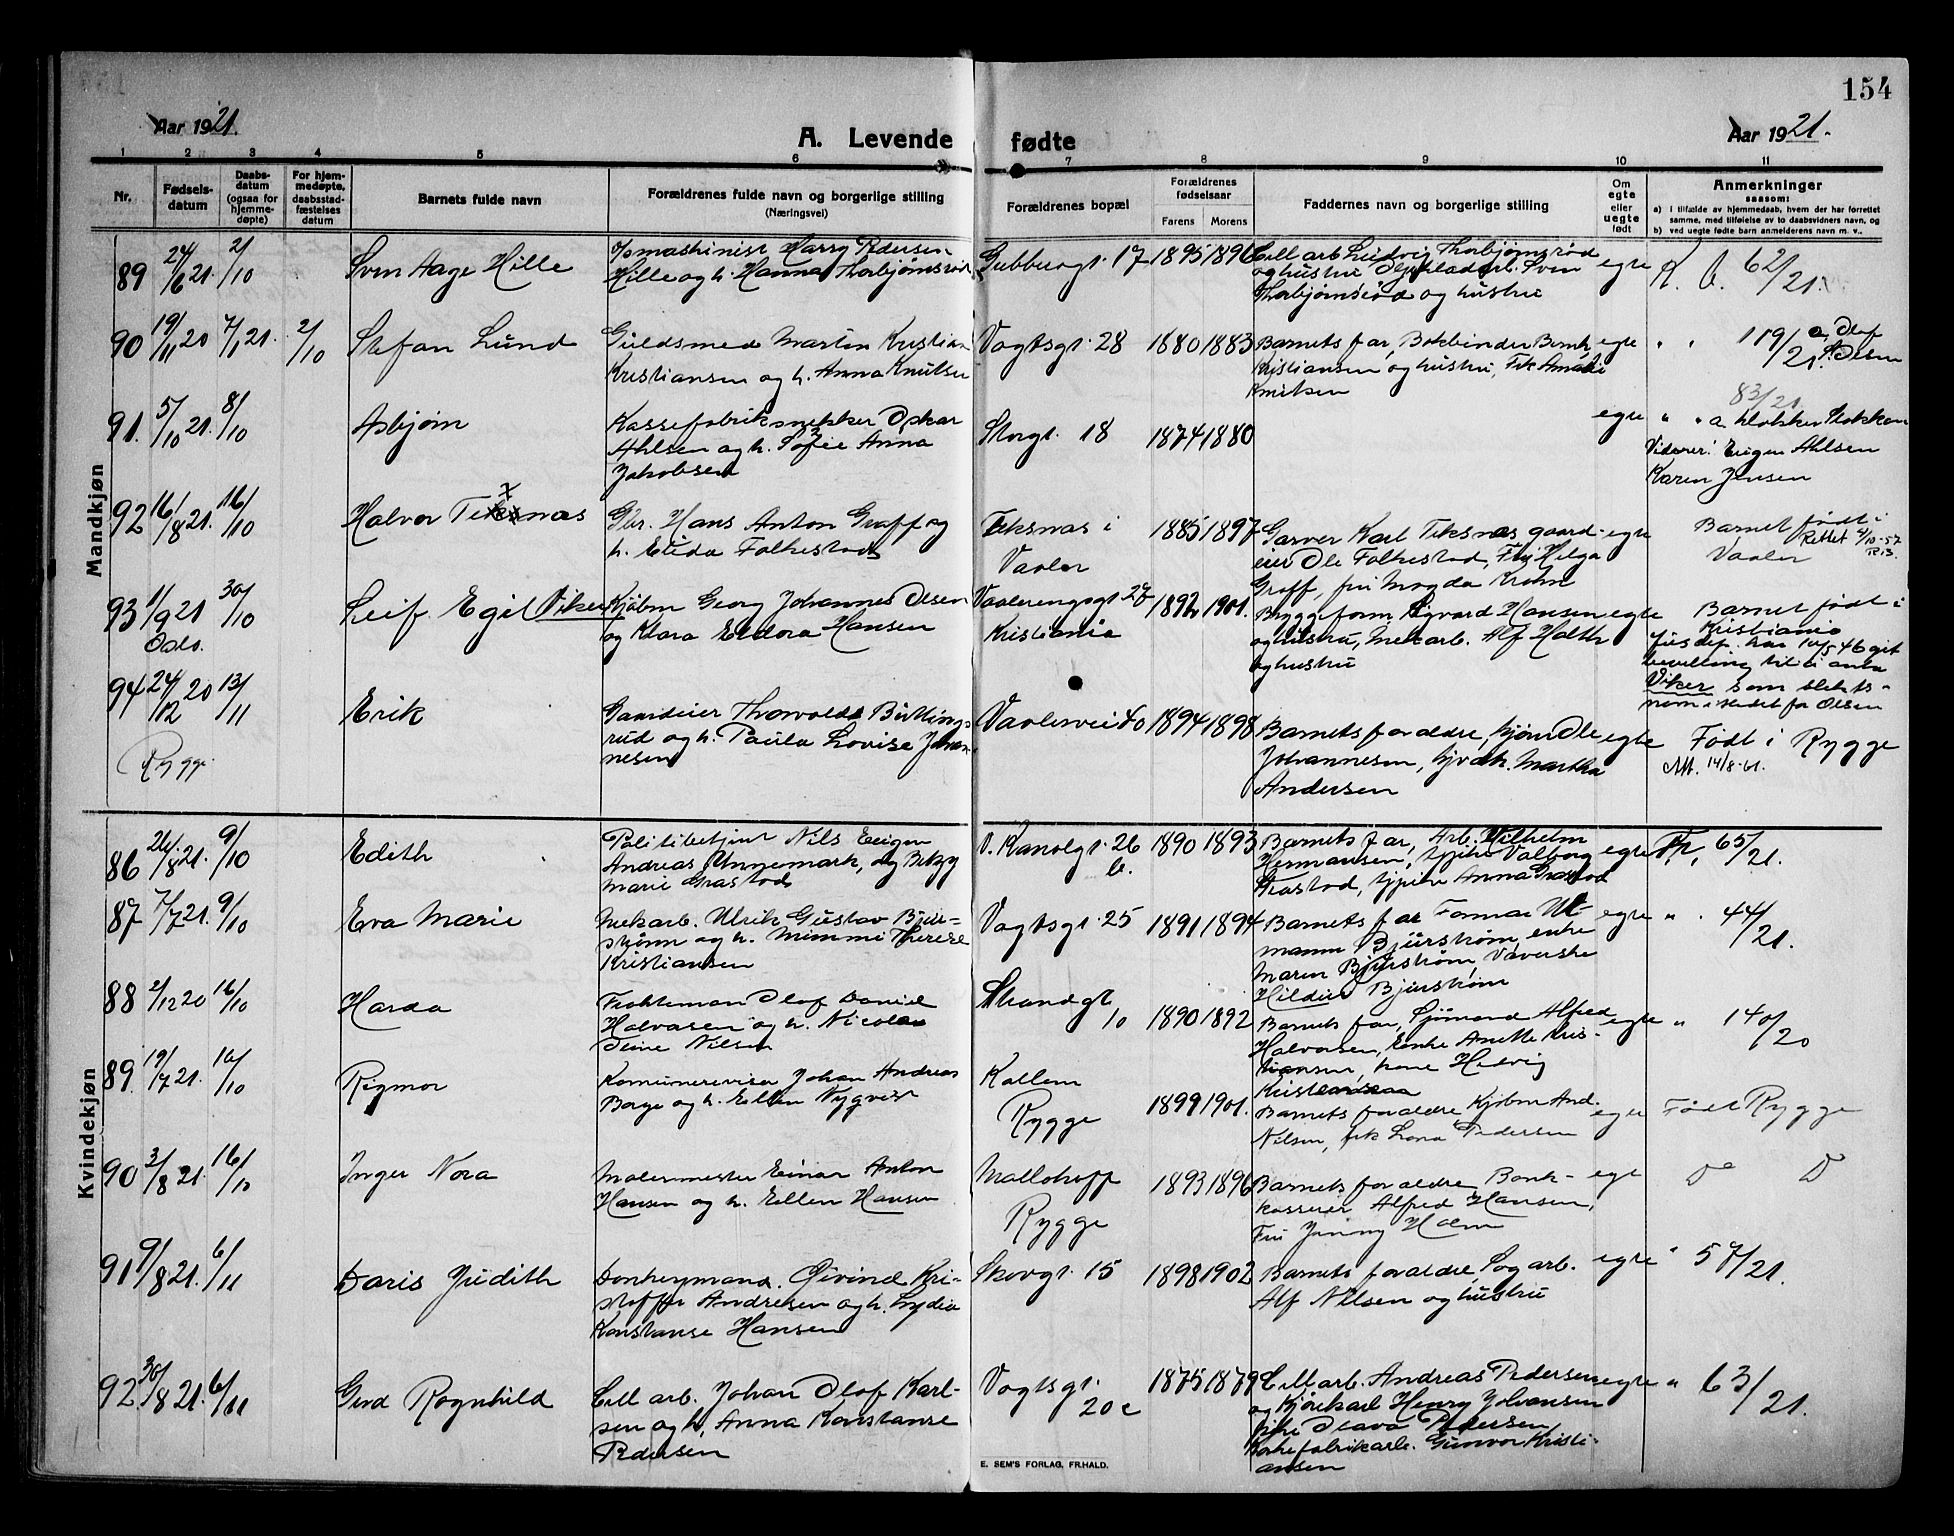 154
Aar 1921.
A. Levende fødte
Aar 1921.
1 2 3 4 5 6 7 8 9 10 11
Nr.
Fødsels-
datum
Daabs-
datum
(ogsaa for
hjemme-
døpte)
For hjem-
medøpte,
daabsstad-
fæstelses
datum
Barnets fulde navn
Forældrenes fulde navn og borgerlige stilling
(Næringsvei)
Forældrenes bopæl
Forældrenes
fødselsaar
Farens Morens
Faddernes navn og borgerlige stilling
Om
egte
eller
uegte
født
Anmerkninger
saasom:
a) i tilfælde av hjemmedaab, hvem der har forrettet
samme, med tilføielse av to daabsvidners navn, og
b) ved uegte fødte barn anmelderens navn m. v..
Mandkjøn
89 24/6 21. 2/10 Sven Aage Hille
Hille og h. Hanna Thorbjørnsrød
17 1895 1896
og hustru
Thorbjørnsrød og hustru
egte
62/21.
90 19/11 20 7/1 21. 2/10 Stefan Lund
Guldsmed Martin Kristian
Kristiansen og h. Anna Knutsen
Vogtsgt. 28 1880 1883
Barnets far, Bokbinder
Kristiansen og hustru,
Knutsen
egte
119/21.
Olsen
91. 5/10 21. 8/10 Asbjørn
Kassefabriksnekker Oskar
Ahlsen og h. Sofie Anna
Jakobsen
Storgt. 18 1874 1880
egte
83/21
Ahlsen
Karen Jensen
92 16/8 21. 16/10 Halvor
Gbr. Hans Anton Graff og
h. Elida Falkestad
Teksnæs i
Vaaler
1885 1897
Garver Karl Teksnæs gaard-
eier Ole Falkestad, Frk Helga
Graff, fru Magda Krohn
egte
Barnet født i
Vaaler
Rettet
93 1/9 21 30/10 Leif Egil Viker
Oslo.
Kjøbm Georg Johannes Olsen
og Klara Eldora Hansen
Vaalerengsgt 27
Kristiania
1892 1901.
Byggeform. Sigvard Hansen
og hustru, mek arb. Alf Holth
og hustru
egte
Barnet født i
Kristiania
Jusdep. har 10/5 46 git
bevilling til å anta
Viker som slekts-
navn istedet for Olsen
94 24/12 20 13/11 Erik
Rygge
Gaardeier Thorvald
rud og h. Paula Lovise Johan-
nesen
Vaalerveien 40 1894 1898
Barnets forældre, Ole
Johannesen, Martha
Andersen
egte
Født i Rygge
14/8-61.
Kvindekjøn
86 26/8 21. 9/10 Edith
Politibetjent Nils Eugen
Andreas Unnemark, og Betzy
Marie Grastad
V. Kanalgt. 26
b.
1890 1893
Barnets far, Arb. Wilhelm
Hermansen, Valborg
Grastad, Anna Grastad
egte
65/21.
87 7/7 21. 9/10 Eva Marie
Mekarb. Ulrik Gustav Bjur-
strøm og h. Mimmi Therese
Kristiansen
Vogtsgt. 25 1891 1894
Barnets far Formar
Bjurstrøm, enke
Maren Bjurstrøm, Væverske
Hildur Bjurstrøm
egte
44/21.
88 2/12 20 16/10 Harda
Olof Daniel
Halvorsen og h.
Nilsen
Strandgt
10
1890 1892
Barnets far, Sjømand Alfred
Halvorsen, Enke Anette Kris-
tiansen, Hedvig
egte
140/20
89. 19/7 21. 16/10 Rigmor
Komunerevisor Johan Andreas
Borge og h. Ellen Nygvist
Kallem
Rygge
1899 1901.
Barnets forældre Kjøbm And.
Nilsen, frk Lona Pedersen
egte
Født Rygge
90 3/8 21. 16/10 Inger Nora
Malermester Einar Anton
Hansen og h. Ellen Hansen
Rygge
1893 1896
Barnets forældre Bank-
kasserer Alfred Hansen,
Fru Jenny Holm
egte
Do D
91 9/8 21. 6/11 Doris Judith
Donkeymand. Øivind Kri-
stoffer Andresen og h. Lydia
Konstanse Hansen
Skovgt. 15 1898 1902
Barnets forældre, Sagarb.
Alf Nilsen og hustru
egte
57/21.
92. 30/8 21. 6/11 Gerd Ragnhild
Cell arb. Johan Olof Karl-
sen og h. Anna Konstanse
Pedersen
Vogtsgt.
20 c
1875 1879
Cell arb. Andreas Pedersen
og Kjørekarl Henry Johansen
pike Olava Pedersen,
Gunvor Kristi-
ansen
egte
63/21.
E. SEM'S FORLAG, FR.HALD.